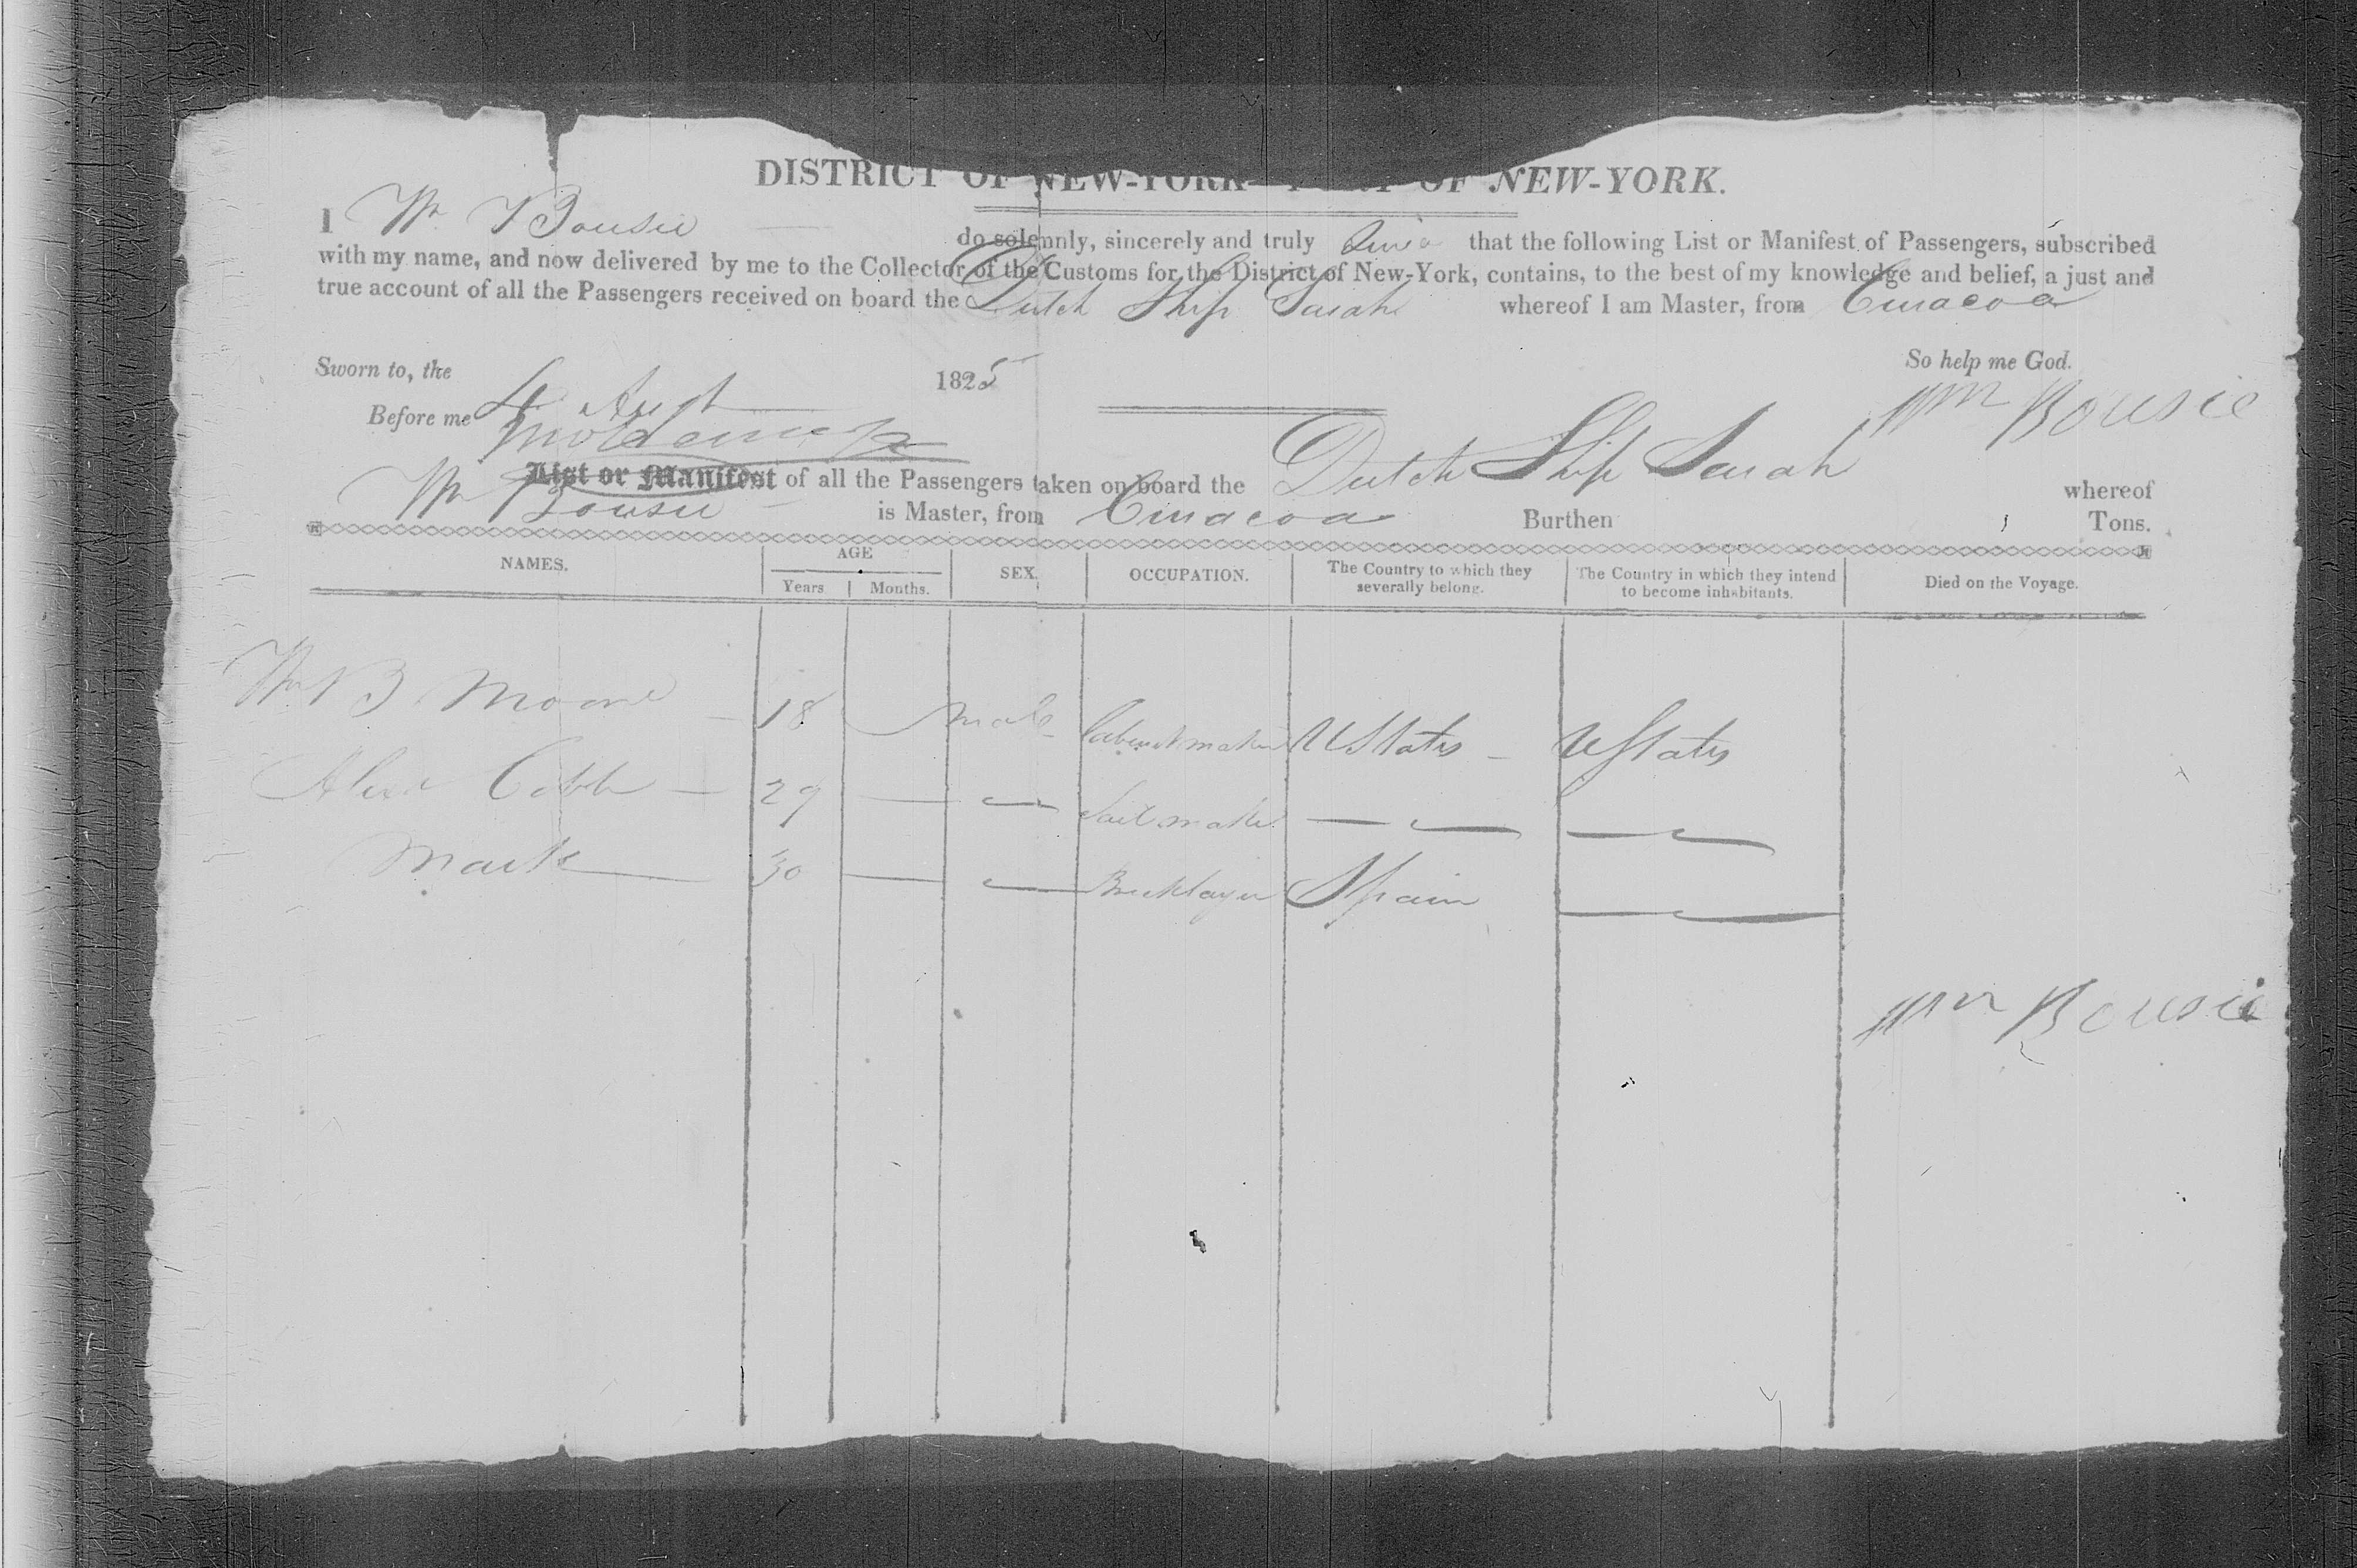 DISTRICT OF NEW-YORK— PORT OF NEW-YORK.
I Wm Bousie do solemnly, sincerely and truly that the following List or Manifest of Passengers, subscribed
with my name, and now delivered by me to the Collector of the Customs for the District of New-York, contains, to the best of my knowledge and belief, a just and
true account of all the Passengers received on board the Dutch Ship Sarah whereof I am Master, from Curacoa
So help me God.
Sworn to, the 4 Augt 1825
Before me
Wm Bousie
List or Manifest of all the Passengers taken on board the Dutch Ship Sarah whereof
Wm Bousie is Master, from Curacoa Burthen Tons.
NAMES. AGE Years Months. SEX. OCCUPATION. The Country to which they severally belong. The Country in which they intend to become inhabitants. Died on the Voyage.
Wm B Moore — 18 — Male Cabinet maker U States — U States
Alexr Cobb — 29 — — Sail maker — —
Mark — 30 — — Bricklayer Spain —
Wm Bousie